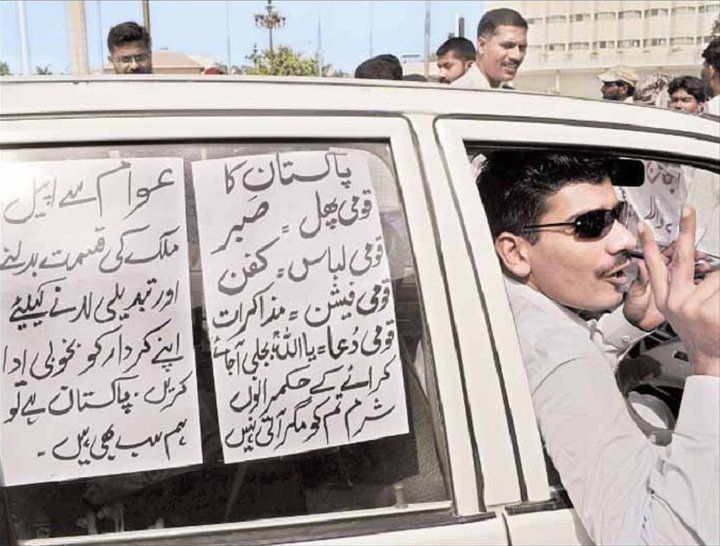 پاکستان کا
قومی پھل = صبر
قومی لباس = کفن
قومی فیشن = مذاکرات
قومی دُعا = یا اللہ بجلی آجائے
کرائے کے حکمرانوں
شرم تم کو مگر آتی نہیں
عوام سے اپیل
ملک کی قسمت بدلنے
اور تبدیلی لانے کیلئے
اپنے کردار کو بخوبی ادا
کریں۔ پاکستان ہے تو
ہم سب بھی ہیں۔